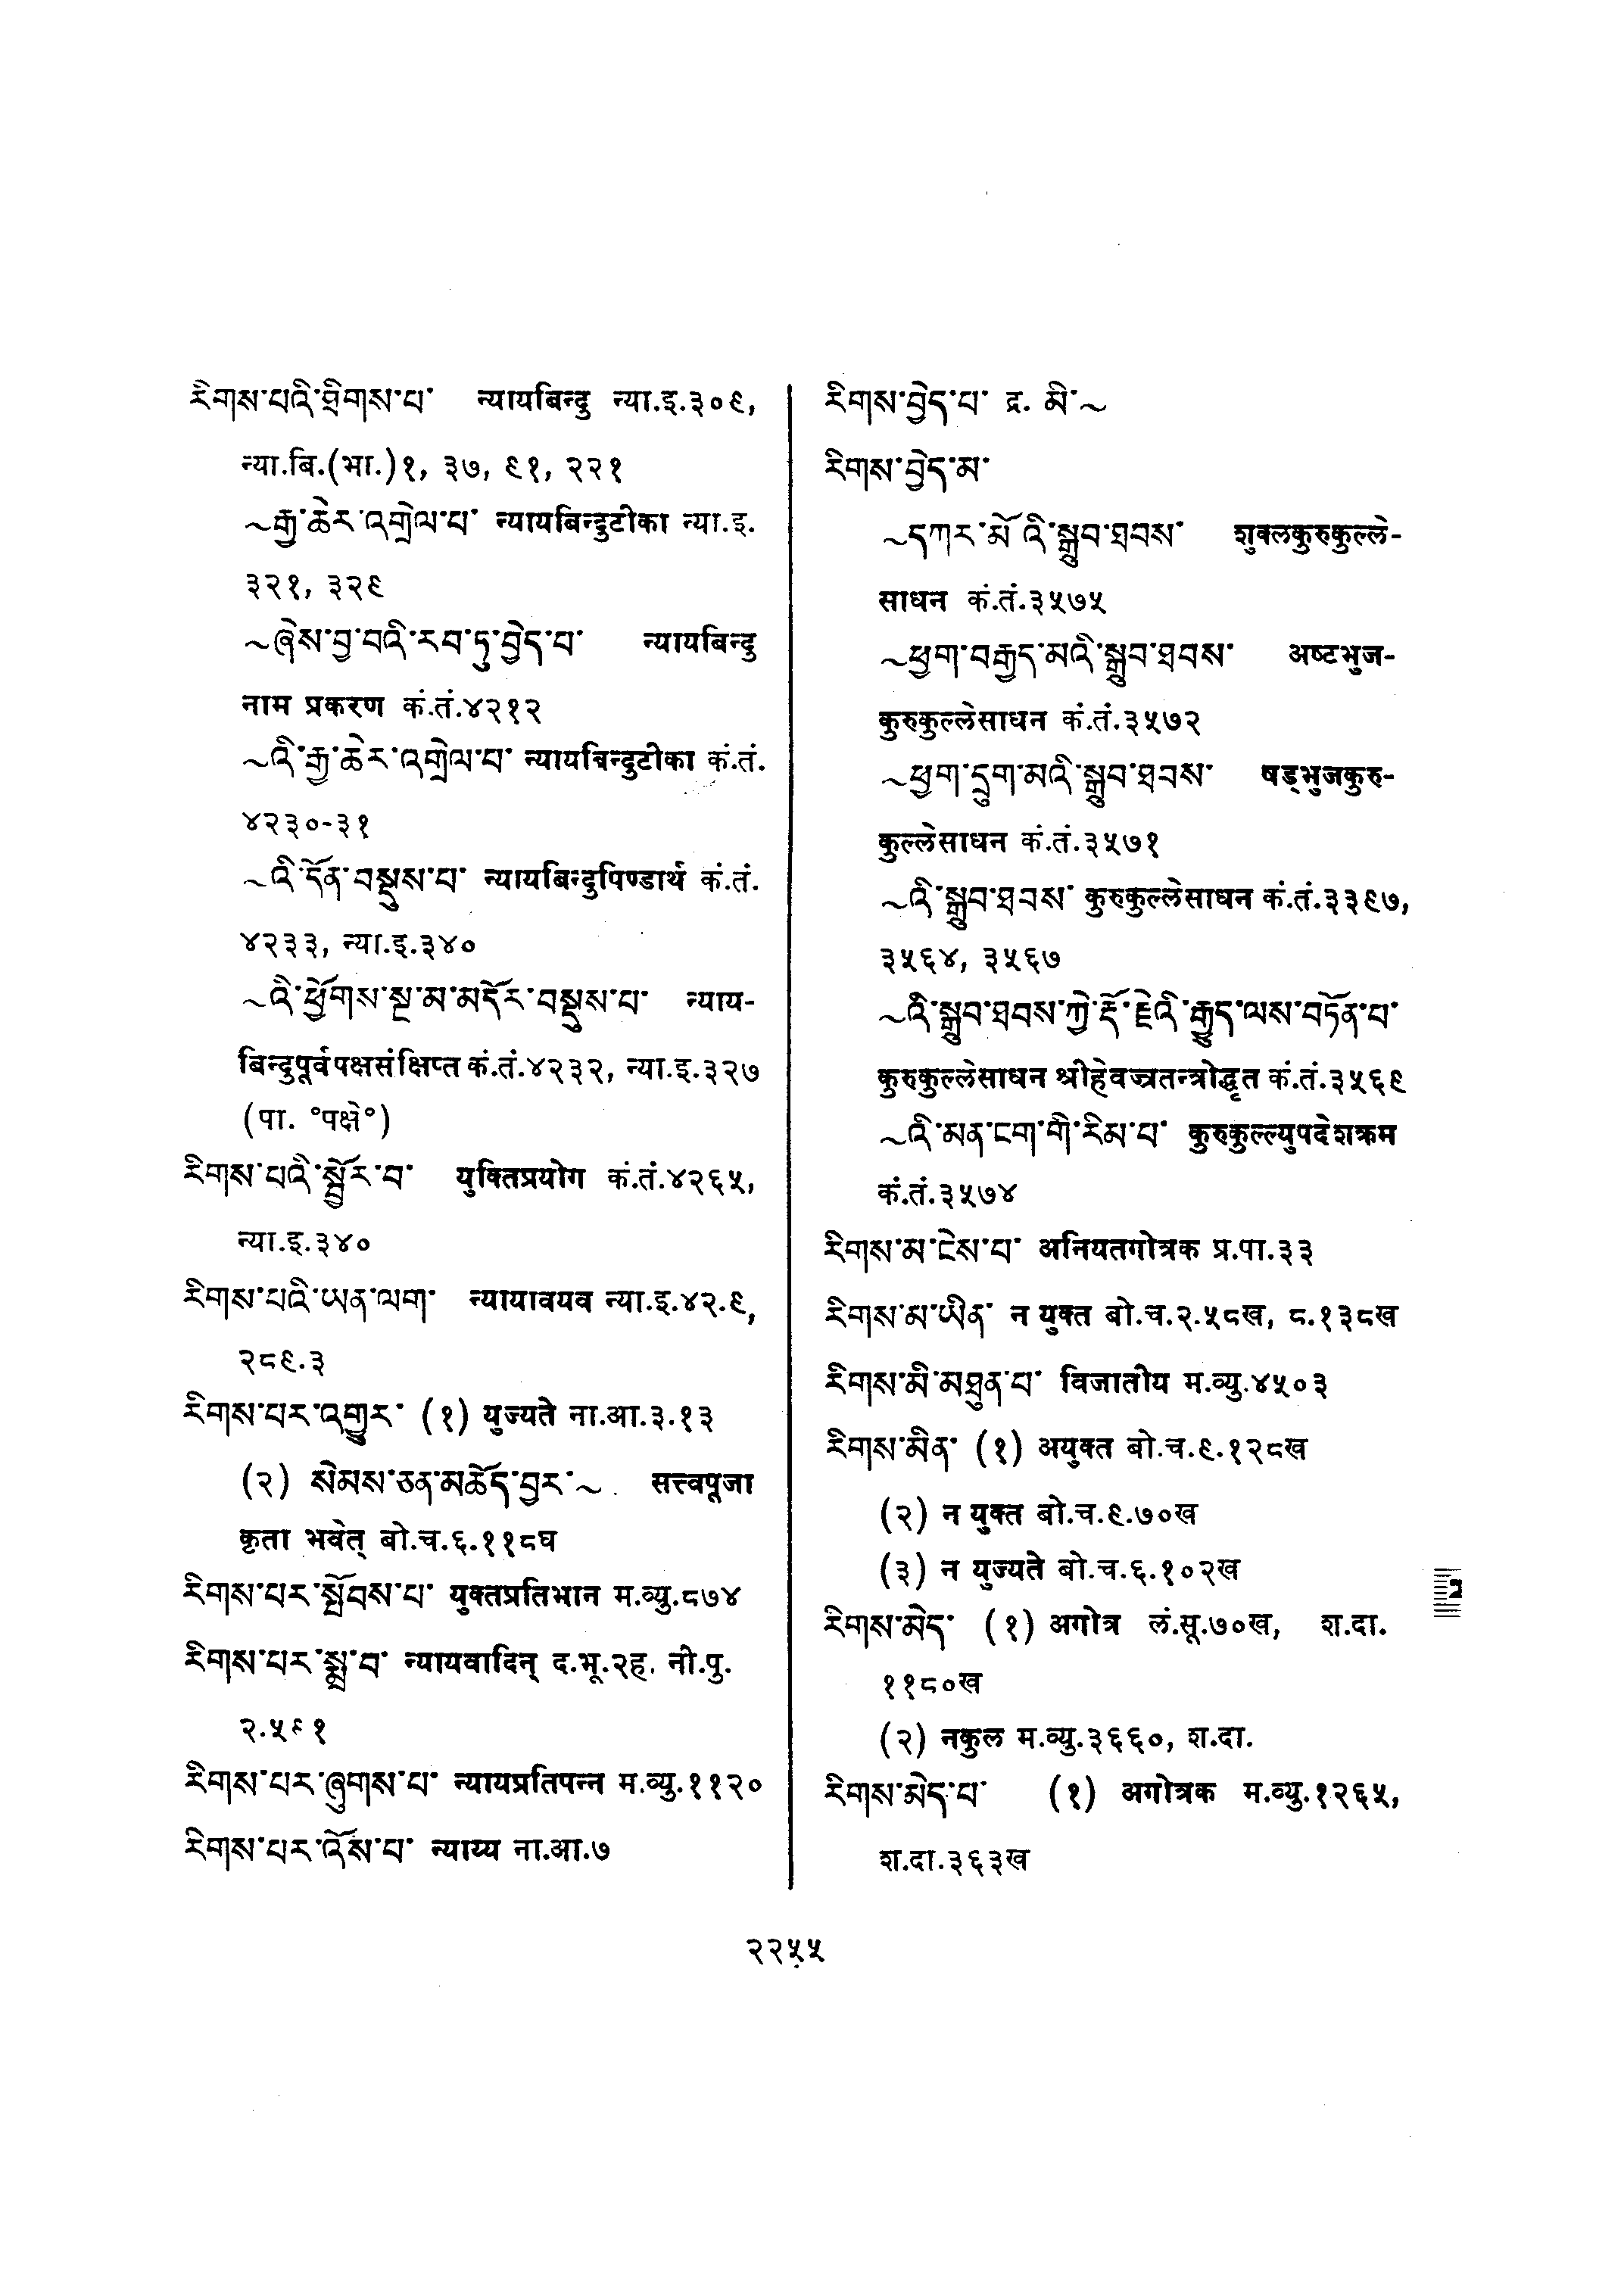 རིགས་པའི་ཐིགས་པ་ न्यायबिन्दु न्या.इ.३०९,
न्या.बि.(भा.)१, ३७, ९१, २२१
~རྒྱ་ཆེར་འགྲེལ་པ་ न्यायबिन्दुटीका न्या.इ.
३२१, ३२९
~ཞེས་བྱ་བའི་རབ་ཏུ་བྱེད་པ་ न्यायबिन्दु
नाम प्रकरण कं.तं.४२१२
~འི་རྒྱ་ཆེར་འགྲེལ་པ་ न्यायबिन्दुटीका कं.तं.
४२३०-३१
~འི་དོན་བསྡུས་པ་ न्यायबिन्दुपिण्डार्थ कं.तं.
४२३३, न्या.इ.३४०
~འི་ཕྱོགས་སྔ་མ་མདོར་བསྡུས་པ་ न्याय-
बिन्दुपूर्वपक्षसंक्षिप्त कं.तं.४२३२, न्या.इ.३२७
(पा. °पक्षे°)
རིགས་པའི་སྦྱོར་བ་ युक्तिप्रयोग कं.तं.४२६५,
न्या.इ.३४०
རིགས་པའི་ཡན་ལག་ न्यायावयव न्या.इ.४२.९,
२८९.३
རིགས་པར་འགྱུར་ (१) युज्यते ना.आ.३.१३
(२) སེམས་ཅན་མཆོད་བྱར་~ सत्त्वपूजा
कृता भवेत् बो.च.६.११८घ
རིགས་པར་སྤོབས་པ་ युक्तप्रतिभान म.व्यु.८७४
རིགས་པར་སྨྲ་བ་ न्यायवादिन् द.भू.२ह, नी.पु.
२.५९१
རིགས་པར་ཞུགས་པ་ न्यायप्रतिपन्न म.व्यु.११२०
རིགས་པར་འོས་པ་ न्याय्य ना.आ.७
རིགས་བྱེད་པ་ द्र. མི་~
རིགས་བྱེད་མ་
~དཀར་མོ་འི་སྒྲུབ་ཐབས་ शुक्लकुरुकुल्ले-
साधन कं.तं.३५७५
~ཕྱག་བརྒྱད་མའི་སྒྲུབ་ཐབས་ अष्टभुज-
कुरुकुल्लेसाधन कं.तं.३५७२
~ཕྱག་དྲུག་མའི་སྒྲུབ་ཐབས་ षड्भुजकुरु-
कुल्लेसाधन कं.तं.३५७१
~འི་སྒྲུབ་ཐབས་ कुरुकुल्लेसाधन कं.तं.३३९७,
३५६४, ३५६७
~འི་སྒྲུབ་ཐབས་ཀྱེ་རྡོ་རྗེའི་རྒྱུད་ལས་བཏོན་པ་
कुरुकुल्लेसाधन श्रीहेवज्रतन्त्रोद्धृत कं.तं.३५६९
~འི་མན་ངག་གི་རིམ་པ་ कुरुकुल्ल्युपदेशक्रम
कं.तं.३५७४
རིགས་མ་ངེས་པ་ अनियतगोत्रक प्र.पा.३३
རིགས་མ་ཡིན་ न युक्त बो.च.२.५८ख, ८.१३८ख
རིགས་མི་མཐུན་པ་ विजातीय म.व्यु.४५०३
རིགས་མིན་ (१) अयुक्त बो.च.९.१२८ख
(२) न युक्त बो.च.९.७०ख
(३) न युज्यते बो.च.६.१०२ख
རིགས་མེད་ (१) अगोत्र लं.सू.७०ख, श.दा.
११८०ख
(२) नकुल म.व्यु.३६६०, श.दा.
རིགས་མེད་པ་ (१) अगोत्रक म.व्यु.१२६५,
श.दा.३६३ख
२२५५